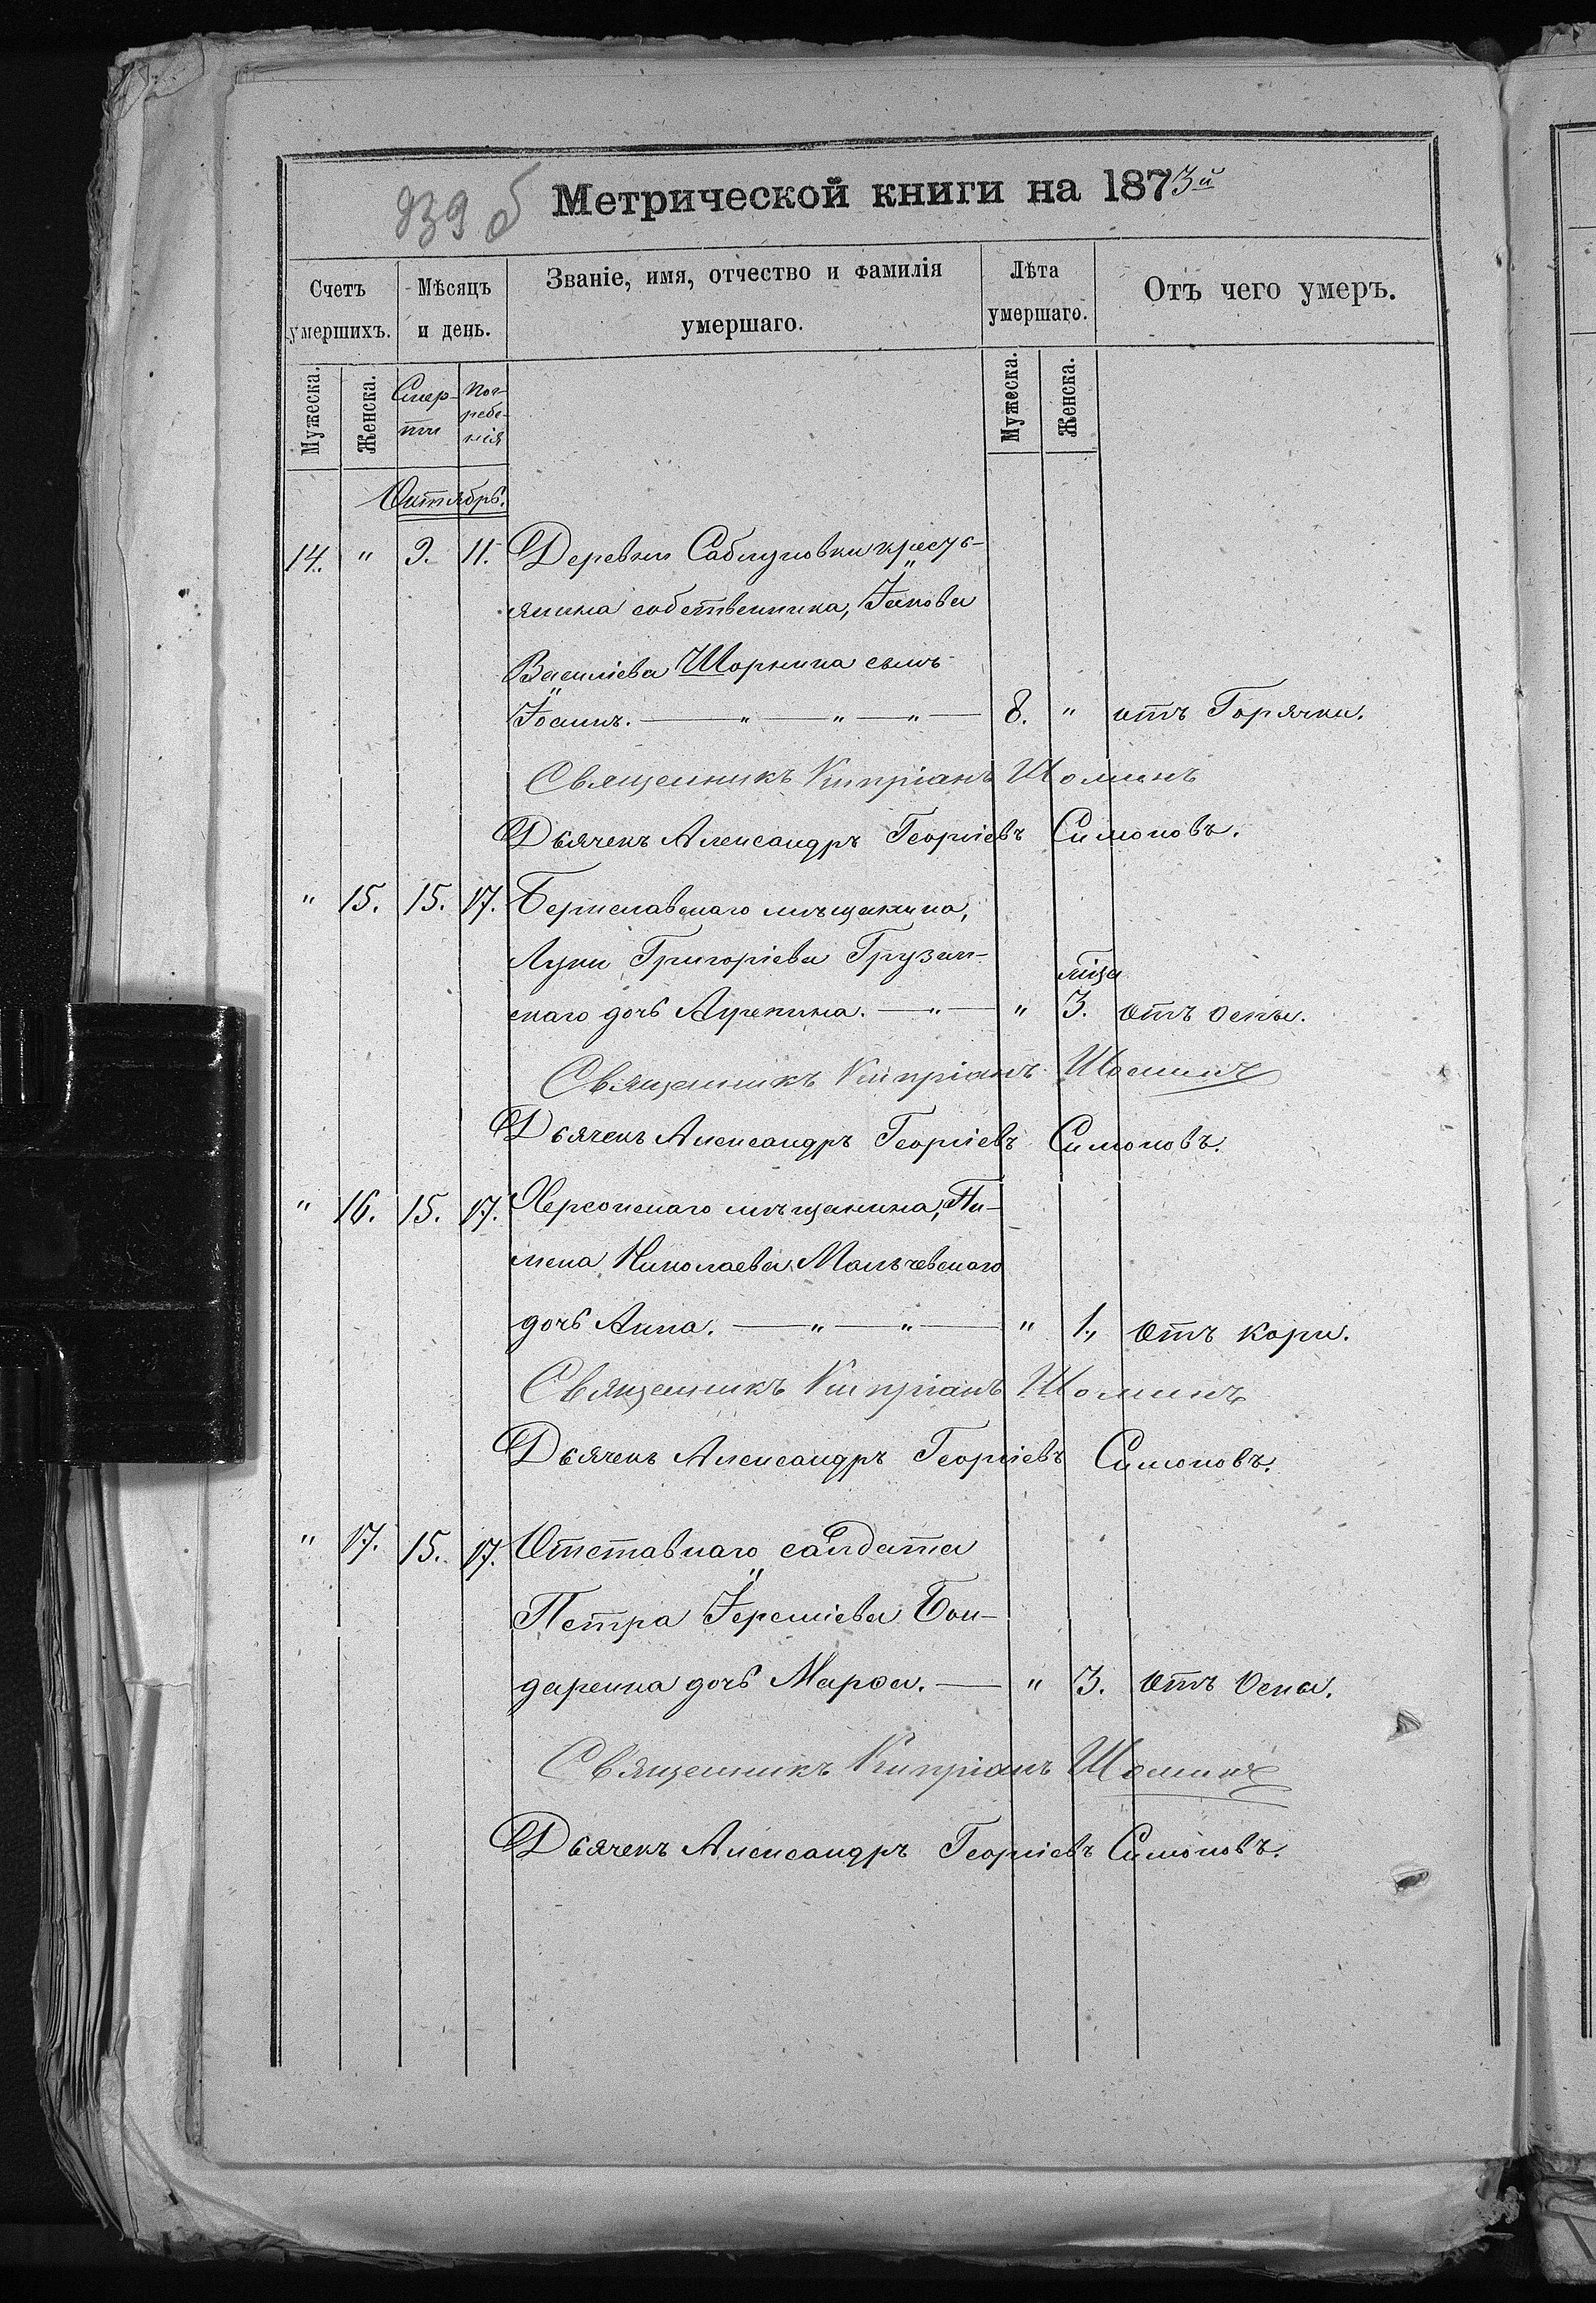 839 б Метрической книги на 1873й
Счетъ умершихъ. Мѣсяцъ и день. Званіе, имя, отчество и фамилія умершаго. Лѣта умершаго. Отъ чего умеръ.
Мужеска. Женска. Смерти Погребенія Мужеска. Женска.
Октябрь.
14. " 9. 11. Деревни Саблуковки кресть-
янина собственника, Іакова
Василіева Шорника сынъ
Іоаннъ. — " — " — " — 8. " отъ Горячки.
Священникъ Кипріанъ Шоминъ
Дьячекъ Александръ Георгіевъ Симоновъ.
" 15. 15. 17. Бериславскаго мѣщанина,
Луки Григоріева Грузин-
скаго дочь Акулина. — " — " 3. отъ оспы.
Священникъ Кипріанъ Шоминъ
Дьячекъ Александръ Георгіевъ Симоновъ.
" 16. 15. 17. Херсонскаго мѣщанина, Пи-
мена Николаева Мальчевскаго
дочь Анна. — " — " — " 1., отъ кори.
Священникъ Кипріанъ Шоминъ
Дьячекъ Александръ Георгіевъ Симоновъ.
" 17. 15. 17. Отставнаго салдата
Петра Іереміева Бон-
даренка дочь Марѳа. — " 3. отъ Оспы.
Священникъ Кипріанъ Шоминъ
Дьячекъ Александръ Георгіевъ Симоновъ.